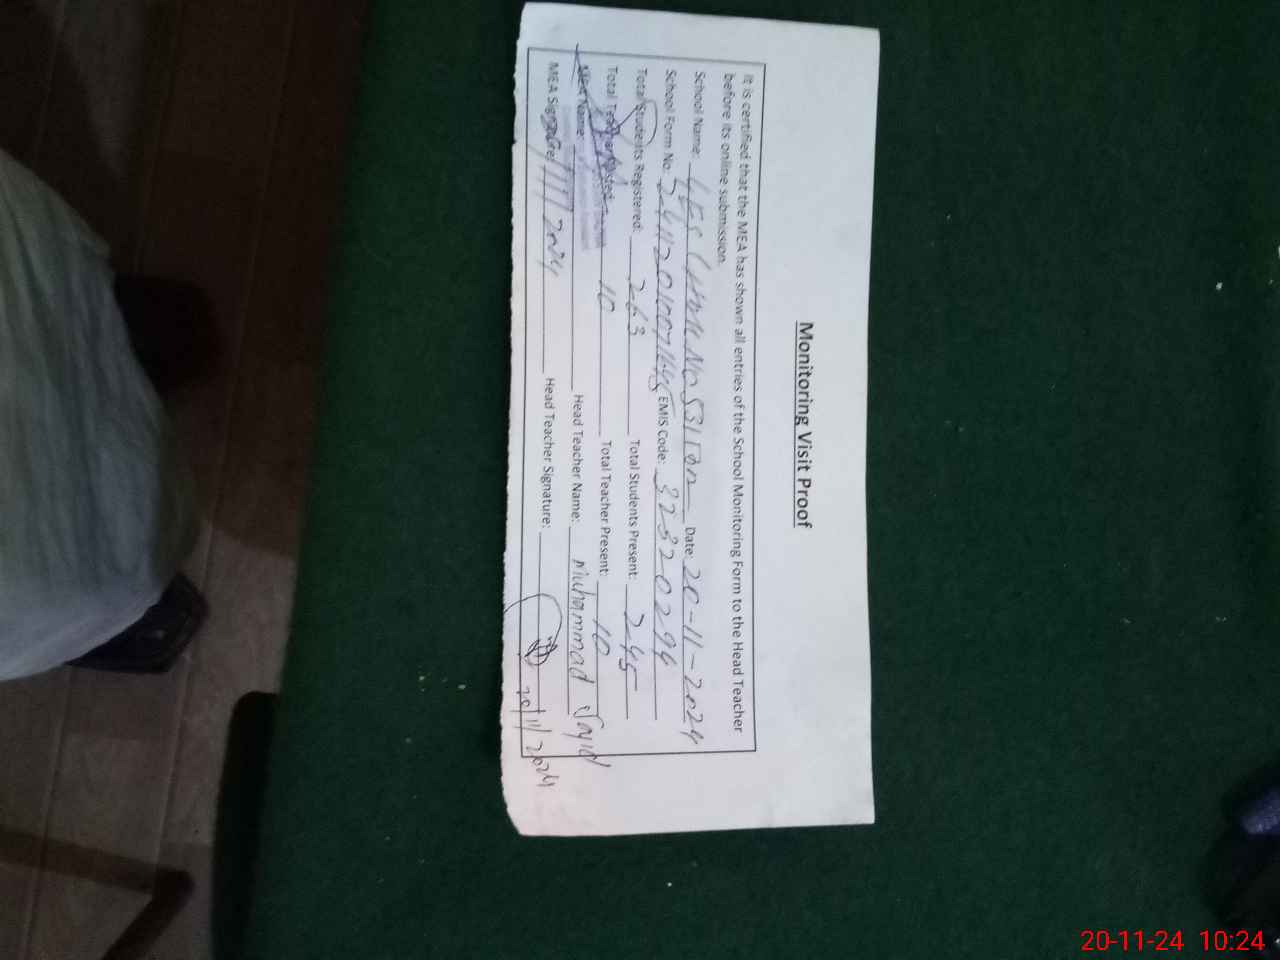 Monitoring Visit Proof
It is certified that the MEA has shown all entries of the School Monitoring Form to the Head Teacher
before its online submission.
School Name: Date: 20-11-2024
School Form No. EMIS Code: 32320294
Total Students Registered: 263 Total Students Present: 245
Total Teacher Posted: 10 Total Teacher Present: 10
MEA Name: Head Teacher Name: Muhammad Sajid
MEA Signature: 2024 Head Teacher Signature:
20/11/2024
20-11-24 10:24